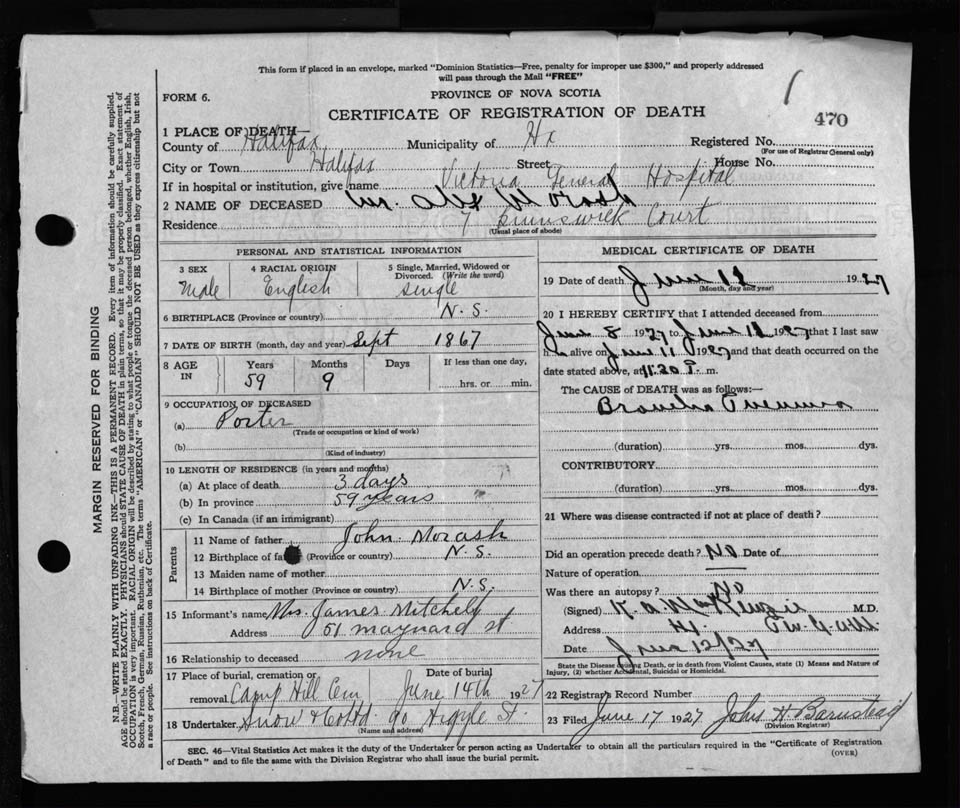 This form if placed in an envelope, marked "Dominion Statistics—Free, penalty for improper use $300," and properly addressed
will pass through the Mail "FREE"
FORM 6.
PROVINCE OF NOVA SCOTIA
CERTIFICATE OF REGISTRATION OF DEATH
470
1 PLACE OF DEATH—
County of Halifax Municipality of Hx Registered No.
(For use of Registrar General only)
City or Town Halifax Street House No.
If in hospital or institution, give name Victoria General Hospital
2 NAME OF DECEASED Mr. Alex Morash
Residence 7 Brunswick Court
(Usual place of abode)
PERSONAL AND STATISTICAL INFORMATION
3 SEX 4 RACIAL ORIGIN 5 Single, Married, Widowed or
Divorced. (Write the word)
Male English single
6 BIRTHPLACE (Province or country) N.S.
7 DATE OF BIRTH (month, day and year) Sept 1867
8 AGE IN Years Months Days If less than one day,
59 9 hrs. or min.
9 OCCUPATION OF DECEASED
(a) Porter
(Trade or occupation or kind of work)
(b)
(Kind of industry)
10 LENGTH OF RESIDENCE (in years and months)
(a) At place of death 3 days
(b) In province 59 years
(c) In Canada (if an immigrant)
Parents
11 Name of father John Morash
12 Birthplace of father (Province or country) N.S.
13 Maiden name of mother
14 Birthplace of mother (Province or country) N.S.
15 Informant's name Mrs. James Mitchell
Address 51 Maynard st
16 Relationship to deceased none
17 Place of burial, cremation or Date of burial
removal Camp Hill Cem June 14th 1927
18 Undertaker Snow & Co Ltd 90 Argyle St.
(Name and address)
MEDICAL CERTIFICATE OF DEATH
19 Date of death June 11 1927
(Month, day and year)
20 I HEREBY CERTIFY that I attended deceased from
June 8 1927 to June 11 1927 that I last saw
h alive on June 11 1927 and that death occurred on the
date stated above, at 11.20 P. m.
The CAUSE of DEATH was as follows:
Broncho Pneumonia
(duration) yrs. mos. dys.
CONTRIBUTORY
(duration) yrs. mos. dys.
21 Where was disease contracted if not at place of death?
Did an operation precede death? No Date of
Nature of operation
Was there an autopsy? No
(Signed) K. A. MacKenzie M.D.
Address
Date June 12/27
State the Disease causing Death, or in death from Violent Causes, state (1) Means and Nature of
Injury, (2) whether Accidental, Suicidal or Homicidal.
22 Registrar's Record Number
23 Filed June 17 1927 John H Barnstead
(Division Registrar)
SEC. 46—Vital Statistics Act makes it the duty of the Undertaker or person acting as Undertaker to obtain all the particulars required in the "Certificate of Registration
of Death" and to file the same with the Division Registrar who shall issue the burial permit.
(OVER)
MARGIN RESERVED FOR BINDING
N.B.—WRITE PLAINLY WITH UNFADING INK—THIS IS A PERMANENT RECORD. Every item of information should be carefully supplied.
AGE should be stated EXACTLY. PHYSICIANS should STATE CAUSE OF DEATH in plain terms, so that it may be properly classified. Exact statement of
OCCUPATION is very important. RACIAL ORIGIN will be described by stating to what people or tongue the deceased person belonged, whether English, Irish,
Scotch, French, German, Russian, Ruthenian, etc. The terms "AMERICAN" or "CANADIAN" SHOULD NOT BE USED as they express citizenship but not
a race or people. See instructions on back of Certificate.